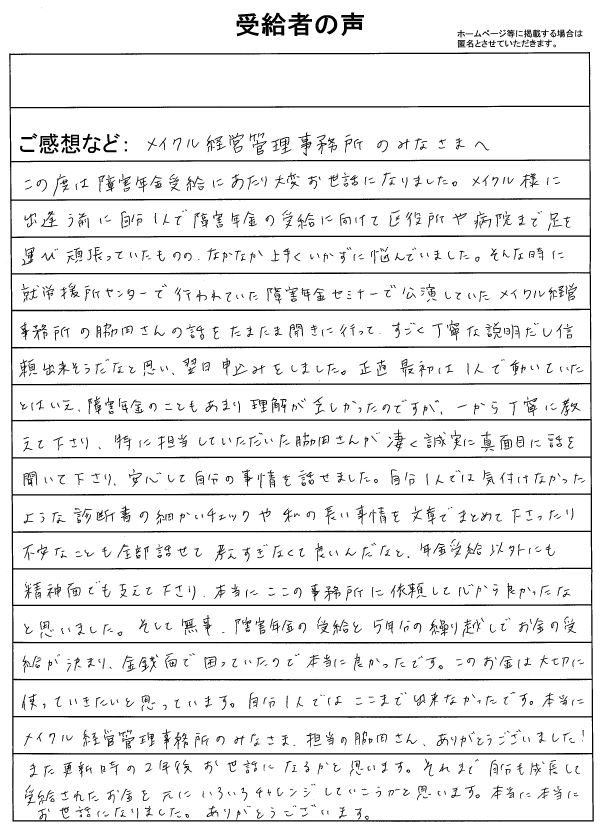 受給者の声
ホームページ等に掲載する場合は
匿名とさせていただきます。
ご感想など： メイクル経営管理事務所のみなさまへ
この度は障害年金受給にあたり大変お世話になりました。メイクル様に
出逢う前に自分1人で障害年金の受給に向けて区役所や病院まで足を
運び頑張っていたものの、なかなか上手くいかずに悩んでいました。そんな時に
就労援所センターで行われていた障害年金セミナーで公演していたメイクル経営
事務所の脇田さんの話をたまたま聞きに行って、すごく丁寧な説明だし信
頼出来そうだなと思い、翌日申込みをしました。正直最初は1人で動いていた
とはいえ、障害年金のこともあまり理解が乏しかったのですが、一から丁寧に教
えて下さり、特に担当していただいた脇田さんが凄く誠実に真面目に話を
聞いて下さり、安心して自分の事情を話せました。自分1人では気付けなかった
ような診断書の細かいチェックや私の長い事情を文章でまとめて下さったり
不安なことも全部話せて考えすぎなくて良いんだなと、年金受給以外にも
精神面でも支えて下さり、本当にここの事務所に依頼して心から良かったな
と思いました。そして無事、障害年金の受給と5年分の繰り越しでお金の受
給が決まり、金銭面で困っていたので本当に良かったです。このお金は大切に
使っていきたいと思っています。自分1人ではここまで出来なかったです。本当に
メイクル経営管理事務所のみなさま、担当の脇田さん、ありがとうございました!
また更新時の2年後お世話になるかと思います。それまで自分も成長して
受給されたお金を元にいろいろチャレンジしていこうかと思います。本当に本当に
お世話になりました。ありがとうございます。